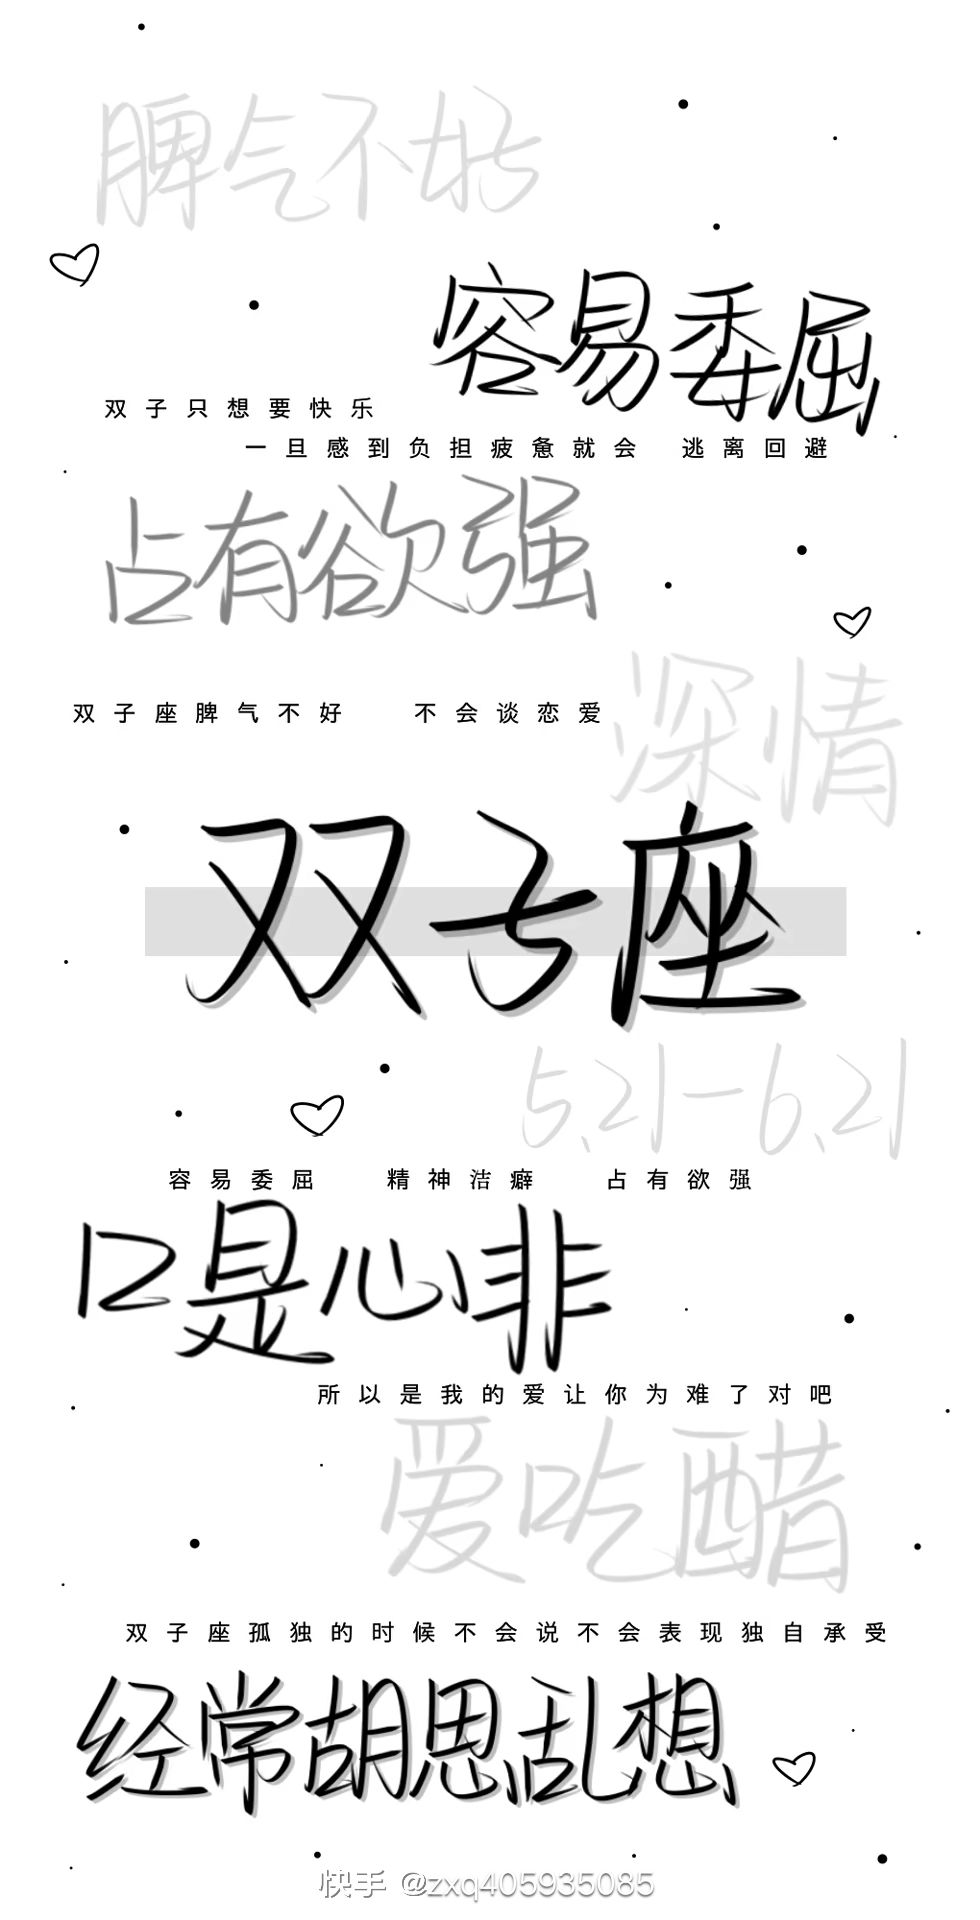 脾气不好
容易委屈
双子只想要快乐
一旦感到负担疲惫就会 逃离回避
占有欲强
深情
双子座脾气不好 不会谈恋爱
双子座
5.21-6.21
容易委屈 精神洁癖 占有欲强
口是心非
所以是我的爱让你为难了对吧
爱吃醋
双子座孤独的时候不会说不会表现独自承受
经常胡思乱想
快手 @zxq405935085